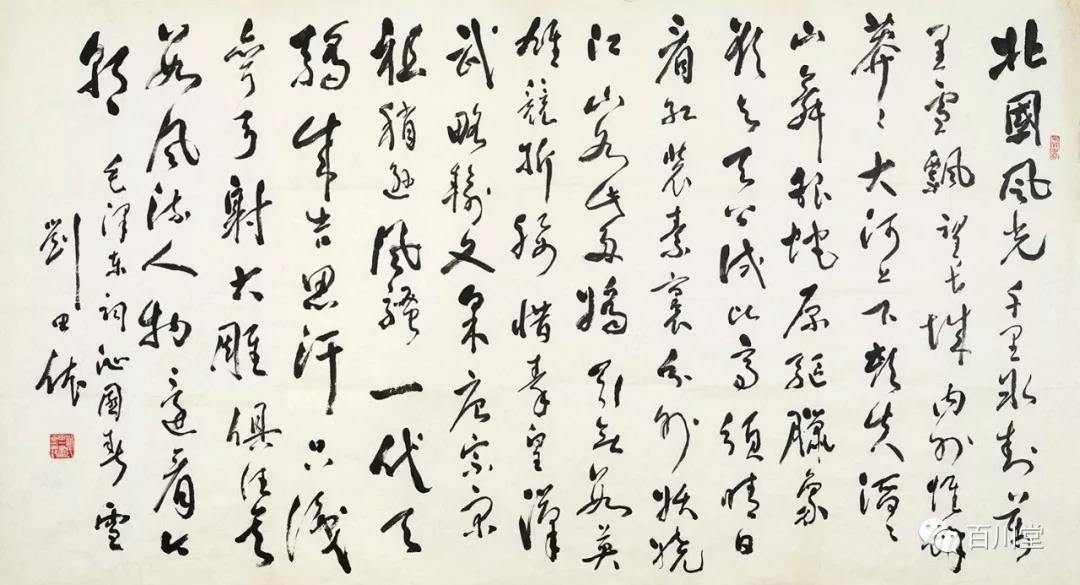 北國風光千里冰封萬
里雪飄望長城內外惟餘
莽々大河上下頓失滔々
山舞銀蛇原驅臘象
欲與天公試比高須晴日
看紅裝素裹分外妖嬈
江山如此多嬌引無數英
雄競折腰惜秦皇漢
武略輸文采唐宗宋
祖稍遜風騷一代天
驕成吉思汗只識
彎弓射大雕俱往矣
數風流人物還看今
朝
毛澤东詞沁園春雪
劉田依
百川堂